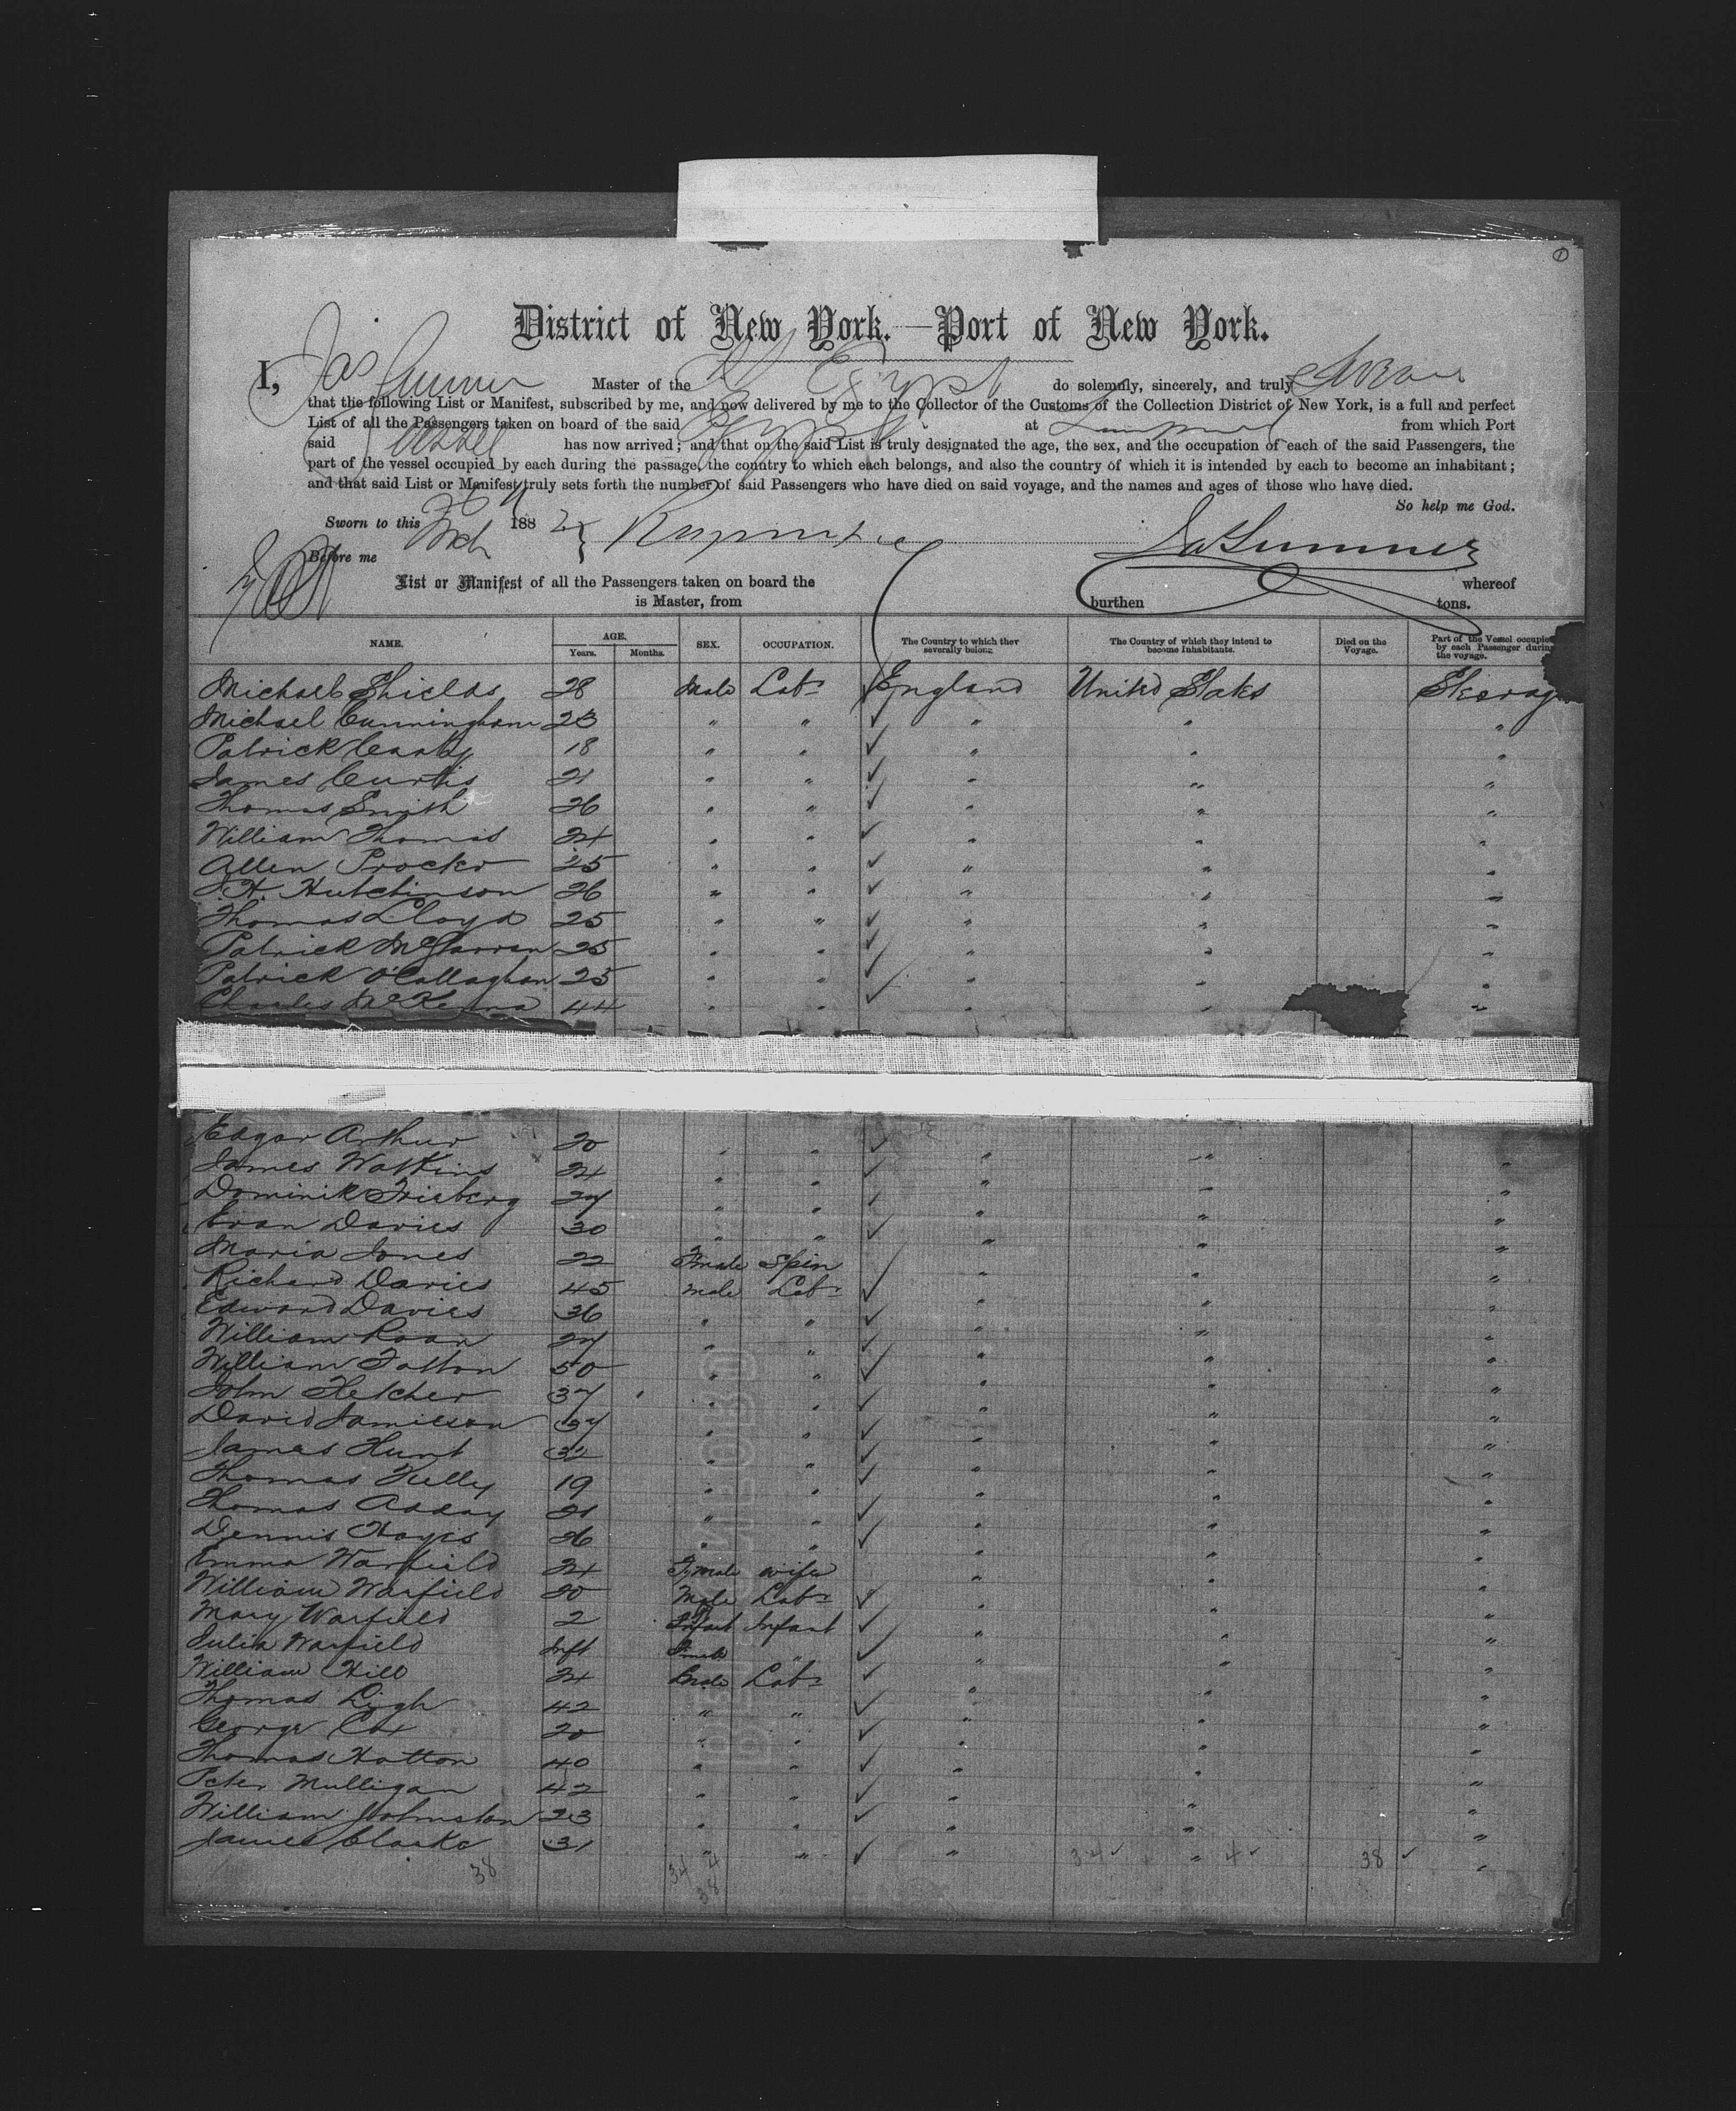 District of New York.—Port of New York.
I, Jas Sumner Master of the SS Egypt do solemnly, sincerely, and truly swear
that the following List or Manifest, subscribed by me, and now delivered by me to the Collector of the Customs of the Collection District of New York, is a full and perfect
List of all the Passengers taken on board of the said Egypt at Liverpool from which Port
said Vessel has now arrived; and that on the said List is truly designated the age, the sex, and the occupation of each of the said Passengers, the
part of the vessel occupied by each during the passage, the country to which each belongs, and also the country of which it is intended by each to become an inhabitant;
and that said List or Manifest truly sets forth the number of said Passengers who have died on said voyage, and the names and ages of those who have died.
So help me God.
Sworn to this Mch 1882
Jas Sumner
Before me
List or Manifest of all the Passengers taken on board the whereof
is Master, from burthen tons.
NAME. AGE. Years. Months. SEX. OCCUPATION. The Country to which they severally belong. The Country of which they intend to become Inhabitants. Died on the Voyage. Part of the Vessel occupied by each Passenger during the voyage.
Michael Shields 28 Male Labr England United States Steerage
Michael Cunningham 23 " " " " "
Patrick 18 " " " " "
James Curtis 21 " " " " "
Thomas Smith 26 " " " " "
William Thomas 24 " " " " "
Allen Procter 25 " " " " "
J. H. Hutchinson 26 " " " " "
Thomas Lloyd 25 " " " " "
Patrick 25 " " " " "
Patrick O'Callaghan 25 " " " " "
Charles McKenna 44 " " " " "
Edgar Arthur 20 " " " " "
James Watkins 24 " " " " "
Dominik Frieberg 27 " " " " "
Evan Davies 30 " " " " "
Maria Jones 22 Female Spin " " "
Richard Davies 45 Male Labr " " "
Edward Davies 36 " " " " "
William Roan 27 " " " " "
William Fatton 50 " " " " "
John Fletcher 37 " " " " "
David Jamieson 37 " " " " "
James Hunt 32 " " " " "
Thomas 19 " " " " "
Thomas Adday 21 " " " " "
Dennis Hayes 26 " " " " "
Emma Warfield 24 Female Wife " " "
William Warfield 20 Male Labr " " "
Mary Warfield 2 Infant Infant " " "
Julia Warfield Inft Female " " " "
William Hill 24 Male Labr " " "
Thomas Ligh 42 " " " " "
George Cox 20 " " " " "
Thomas Hatton 40 " " " " "
Peter Mulligan 42 " " " " "
William Johnston 23 " " " " "
James Clarke 31 " " " " "
38 34 4 34 4 38
38